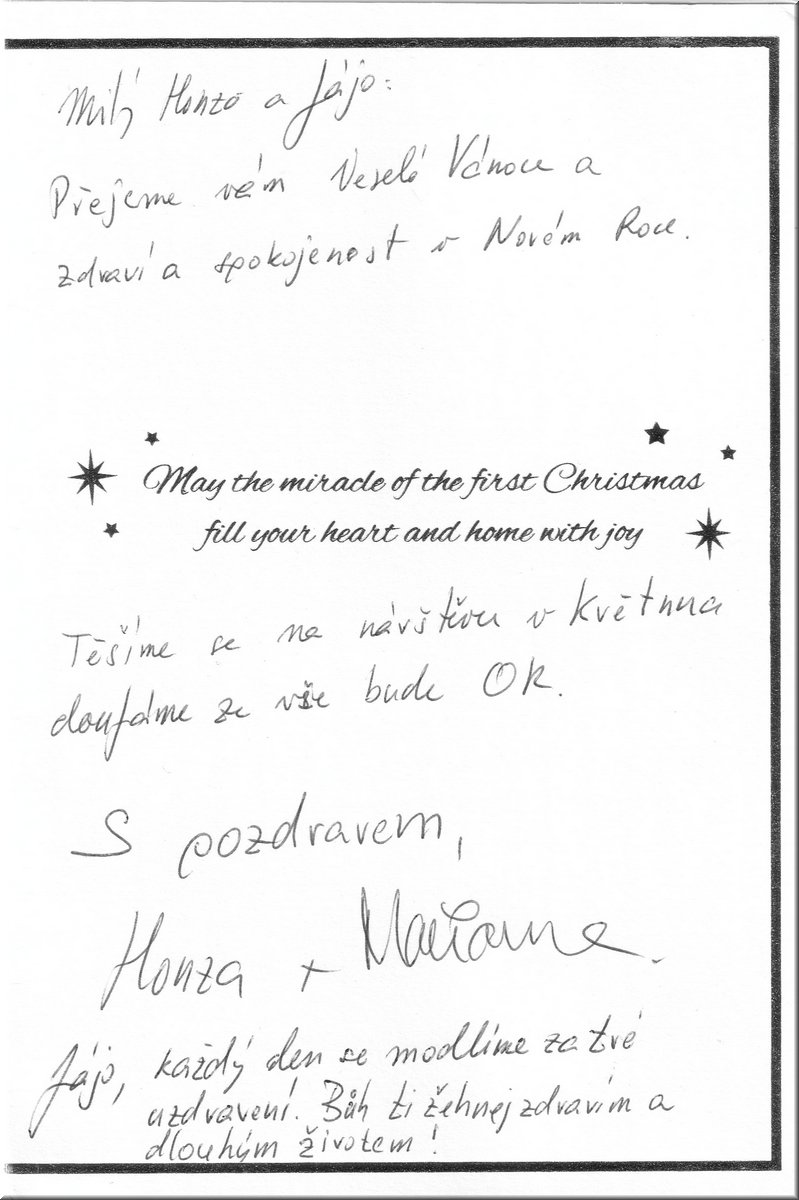 Milý Honzo a Jájo:
Přejeme vám Veselé Vánoce a
zdraví a spokojenost v Novém Roce.
May the miracle of the first Christmas
fill your heart and home with joy
Těšíme se na návštěvu v Květnu a
doufáme ze vše bude OK.
S pozdravem,
Honza + Marianne.
Jájo, každý den se modlíme za tvé
uzdravení. Bůh ti žehnej zdravím a
dlouhým životem!